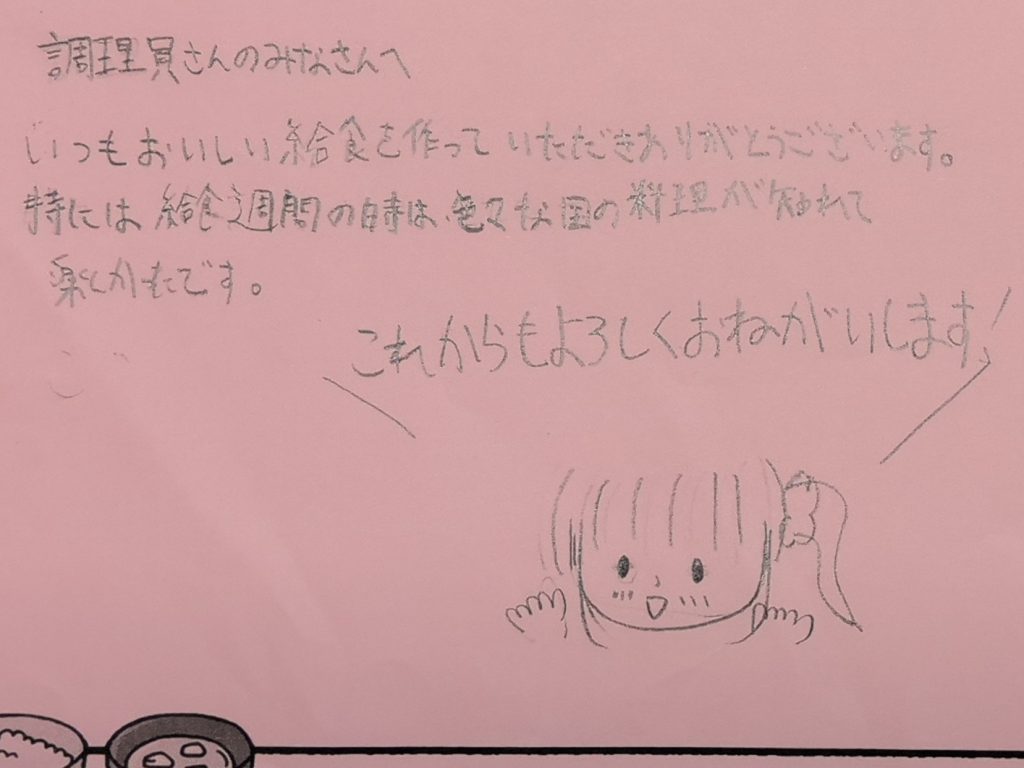 調理員さんのみなさんへ
いつもおいしい給食を作っていただきありがとうございます。
特には給食週間の時は、色々な国の料理が知れて
楽しかたです。
これからもよろしくおねがいします!